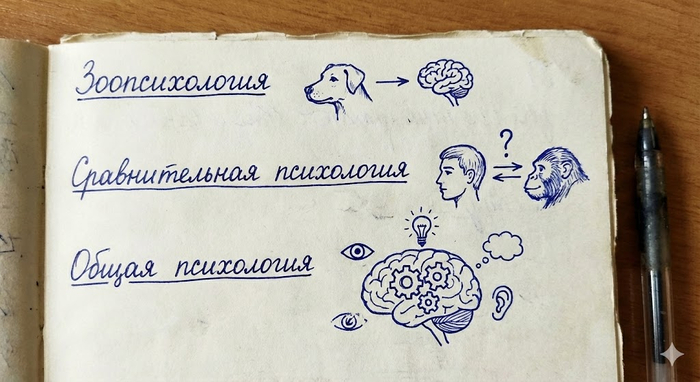 Зоопсихология
Сравнительная психология
?
Общая психология